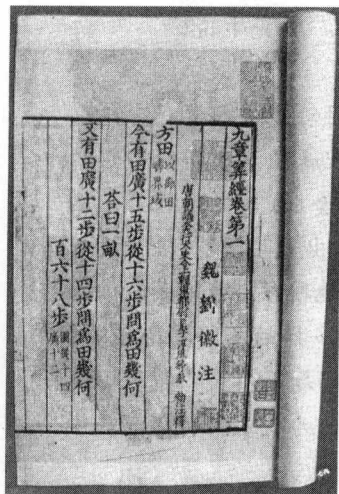 九章筭經卷第一
魏劉徽注
唐朝議大夫行太史令上輕車都尉臣李淳風等奉敕注釋
方田以御田疇界域
今有田廣十五步從十六步問爲田幾何
荅曰一畝
又有田廣十二步從十四步問爲田幾何
百六十八步圖從十四廣十二